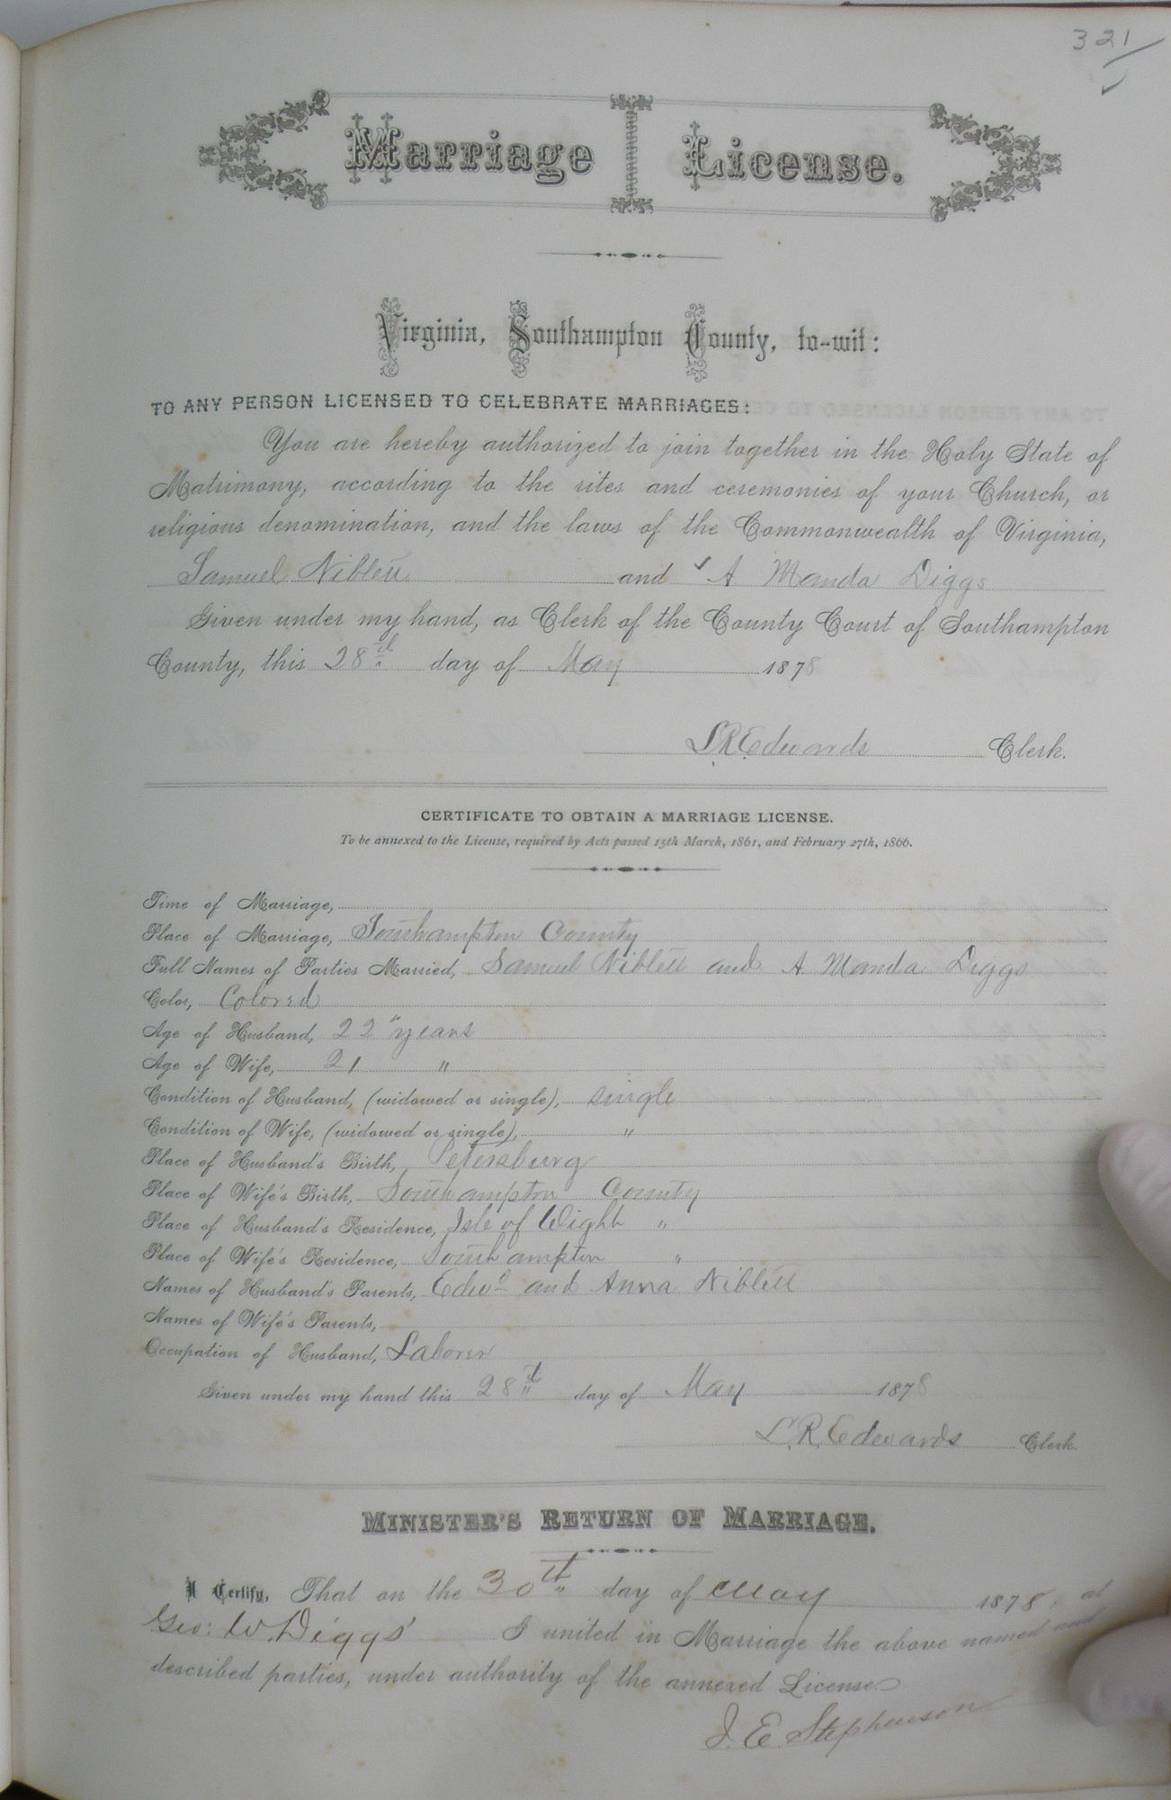 321
Marriage License.
Virginia, Southampton County, to-wit:
TO ANY PERSON LICENSED TO CELEBRATE MARRIAGES:
You are hereby authorized to join together in the Holy State of
Matrimony, according to the rites and ceremonies of your Church, or
religious denomination, and the laws of the Commonwealth of Virginia,
Samuel Niblett and A Manda Diggs
Given under my hand, as Clerk of the County Court of Southampton
County, this 28th day of May 1878
L.R. Edwards Clerk.
CERTIFICATE TO OBTAIN A MARRIAGE LICENSE.
To be annexed to the License, required by Acts passed 15th March, 1861, and February 27th, 1866.
Time of Marriage,
Place of Marriage, Southampton County
Full Names of Parties Married, Samuel Niblett and A Manda Diggs
Color, Colored
Age of Husband, 22 years
Age of Wife, 21 "
Condition of Husband, (widowed or single), single
Condition of Wife, (widowed or single), "
Place of Husband's Birth, Petersburg
Place of Wife's Birth, Southampton County
Place of Husband's Residence, Isle of Wight "
Place of Wife's Residence, Southampton "
Names of Husband's Parents, Edwd and Anna Niblett
Names of Wife's Parents,
Occupation of Husband, Laborer
Given under my hand this 28th day of May 1878
L.R. Edwards Clerk.
MINISTER'S RETURN OF MARRIAGE.
I Certify, That on the 30th day of May 1878, at
Geo: W. Diggs' I united in Marriage the above named and
described parties, under authority of the annexed License
J. E. Stephenson